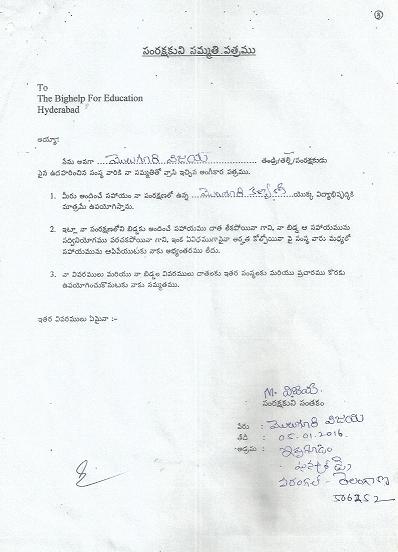 సంరక్షకుని సమ్మతి పత్రము
To
The Bighelp For Education
Hyderabad
అయ్యా:
నేను అనగా మొలుగూరి విజయ తండ్రి/తల్లి/సంరక్షకుడు
పైన ఉదహరించిన సంస్థ వారికి నా సమ్మతితో వ్రాసి ఇచ్చిన అంగీకార పత్రము.
1. మీరు అందించే సహాయం నా సంరక్షణలో ఉన్న మొలుగూరి కల్యాణి యొక్క విద్యాభివృద్ధికి
మాత్రమే ఉపయోగిస్తాను.
2. ఇట్లా నా సంరక్షణలోని బిడ్డకు అందించే సహాయం దాత లేకపోయినా గాని, నా బిడ్డ ఆ సహాయమును
సద్వినియోగము పరచకపోయినా గాని, ఇంక ఏవిధముగానైనా అర్హత కోల్పోయినా పై సంస్థ వారు మధ్యలో
సహాయమును ఆపివేయుటకు నాకు అభ్యంతరము లేదు.
3. నా వివరములు మరియు నా బిడ్డల వివరములు దాతలకు ఇతర సంస్థలకు మరియు ప్రచారము కొరకు
ఉపయోగించుకొనుటకు నాకు సమ్మతము.
ఇతర వివరములు ఏమైనా :-
M. విజయ
సంరక్షకుని సంతకం
పేరు : మొలుగూరి విజయ
తేది : 05.01.2016
అడ్రసు :
వరంగల్ - తెలంగాణ
506252